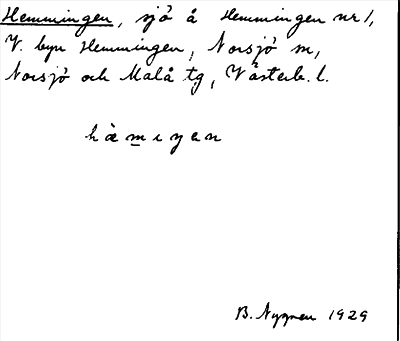 Hemmingen, sjö å Hemmingen nr 1,
V. byn Hemmingen, Norsjö sn,
Norsjö och Malå tg, Västerb. l.
hämiŋen
B. Nygren 1929